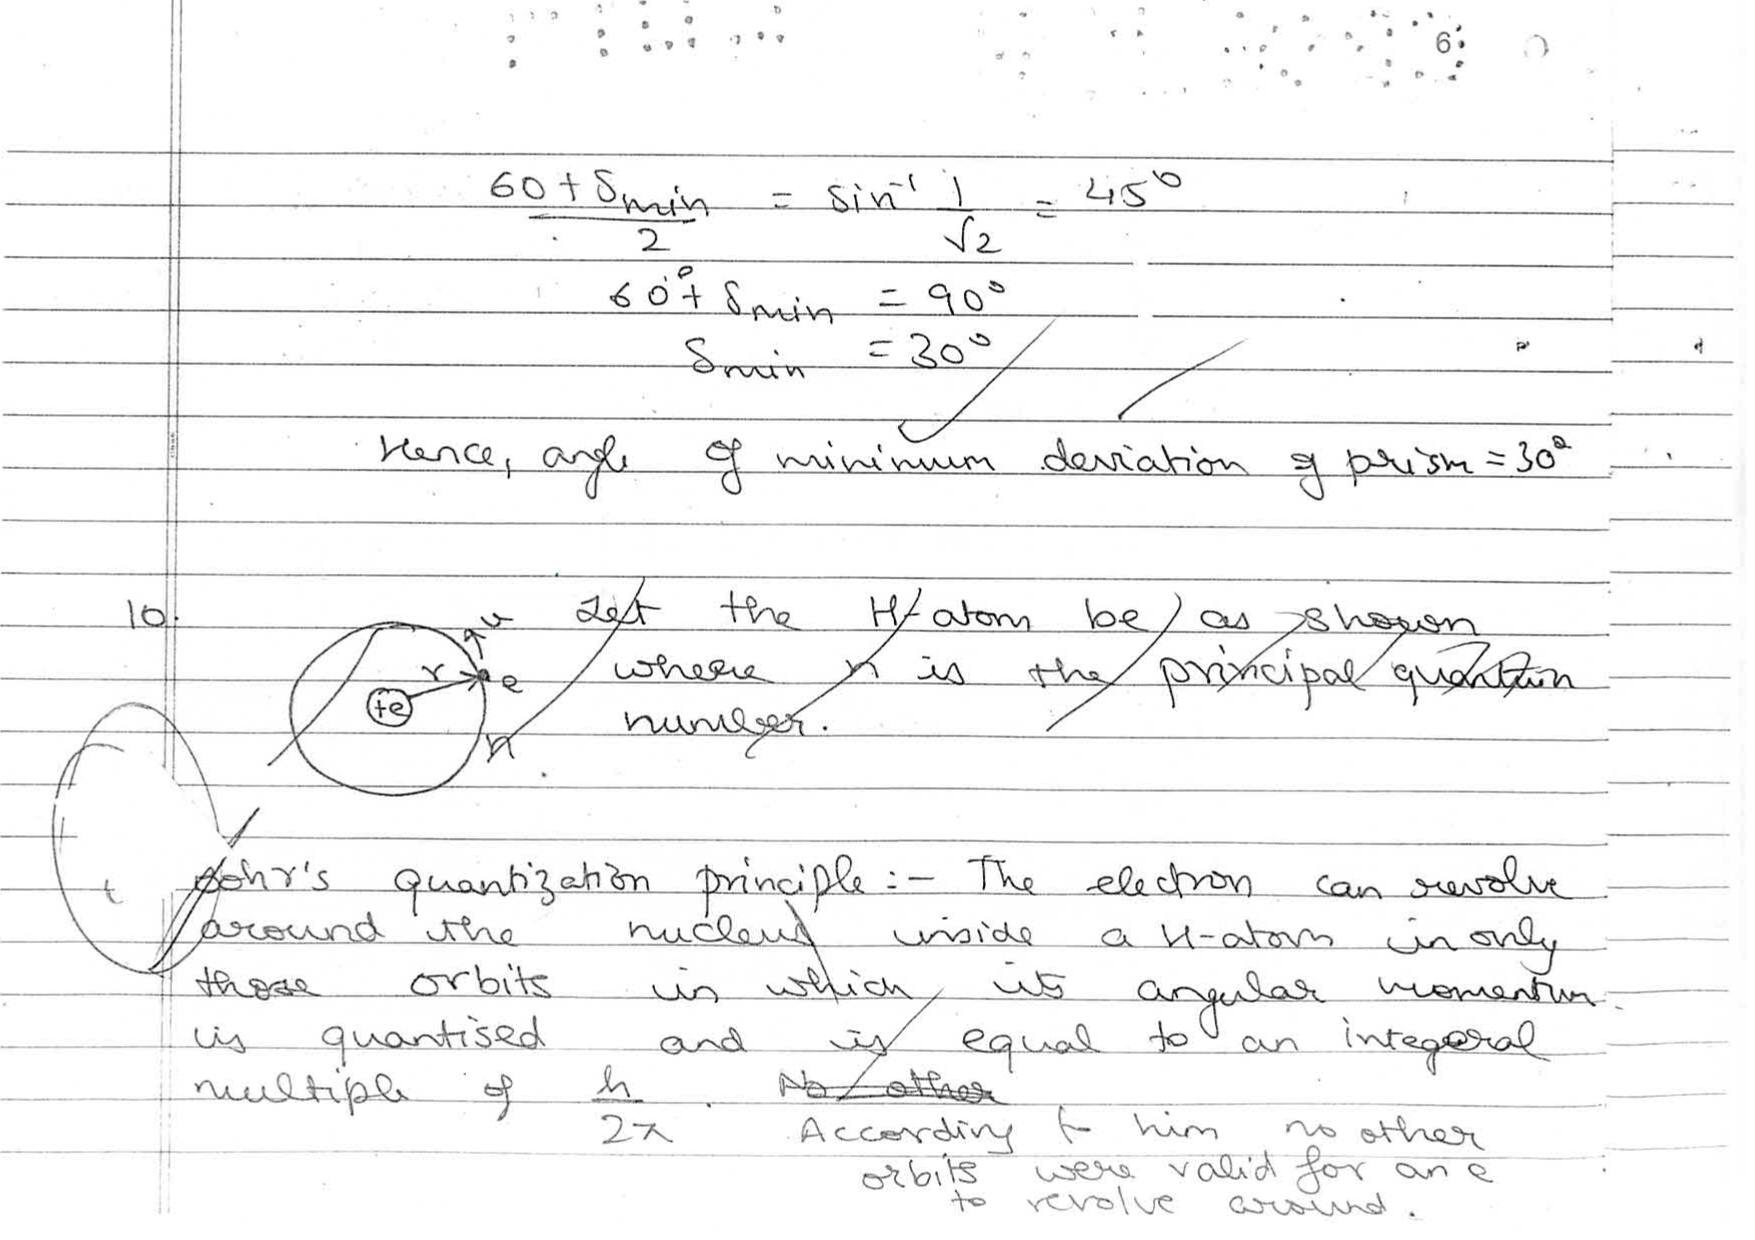 6
60 + δmin / 2 = sin⁻¹ 1/√2 = 45°
60° + δmin = 90°
δmin = 30°
Hence, angle of minimum deviation of prism = 30°
10. Let the H-atom be as shown
where n is the principal quantum
number.
v
r
e
+e
n
Bohr's quantization principle :- The electron can revolve
around the nucleus inside a H-atom in only
those orbits in which its angular momentum
is quantised and is equal to an integeral
multiple of h/2π. No other
According to him no other
orbits were valid for an e
to revolve around.